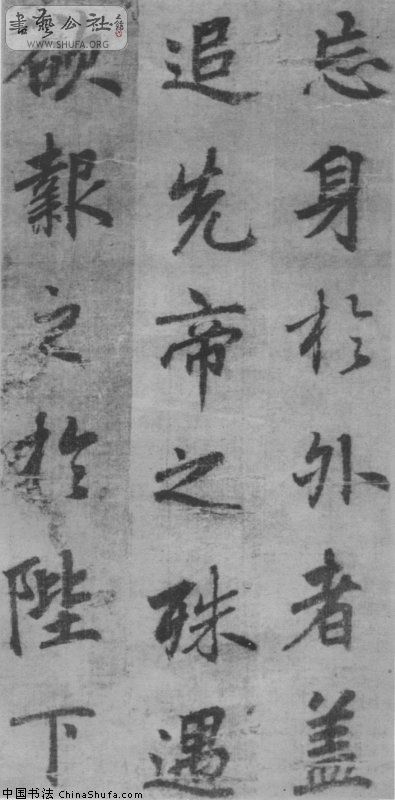 忘身於外者盖
追先帝之殊遇
欲報之於陛下
書藝公社
WWW.SHUFA.ORG
中国书法 ChinaShufa.com